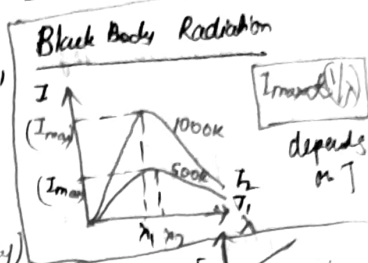 Black Body Radiation
I
(Imax)
1000K
(Imax
500K
T₂
T₁
λ₁ λ₂
λ
Imax ∝ (1/λ)
depends
on T